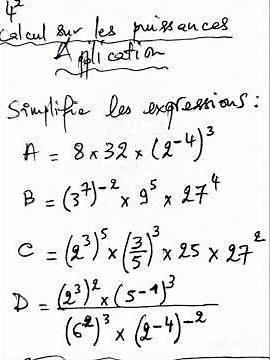 4e
Calcul sur les puissances
Application
Simplifie les expressions :
A = 8 × 32 × (2⁻⁴)³
B = (3⁷)⁻² × 9⁵ × 27⁴
C = (2³)⁵ × (3/5)³ × 25 × 27²
D = ((2³)² × (5-1)³) / ((6²)³ × (2-4)⁻²)